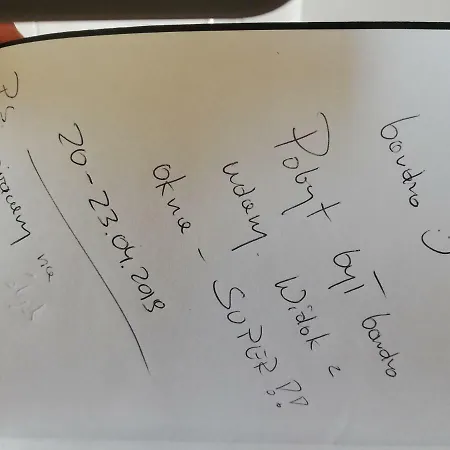 bardzo :)
Pobyt był bardzo
udany. Widok z
okna - SUPER!!
20-23.04.2019
P.S.
na